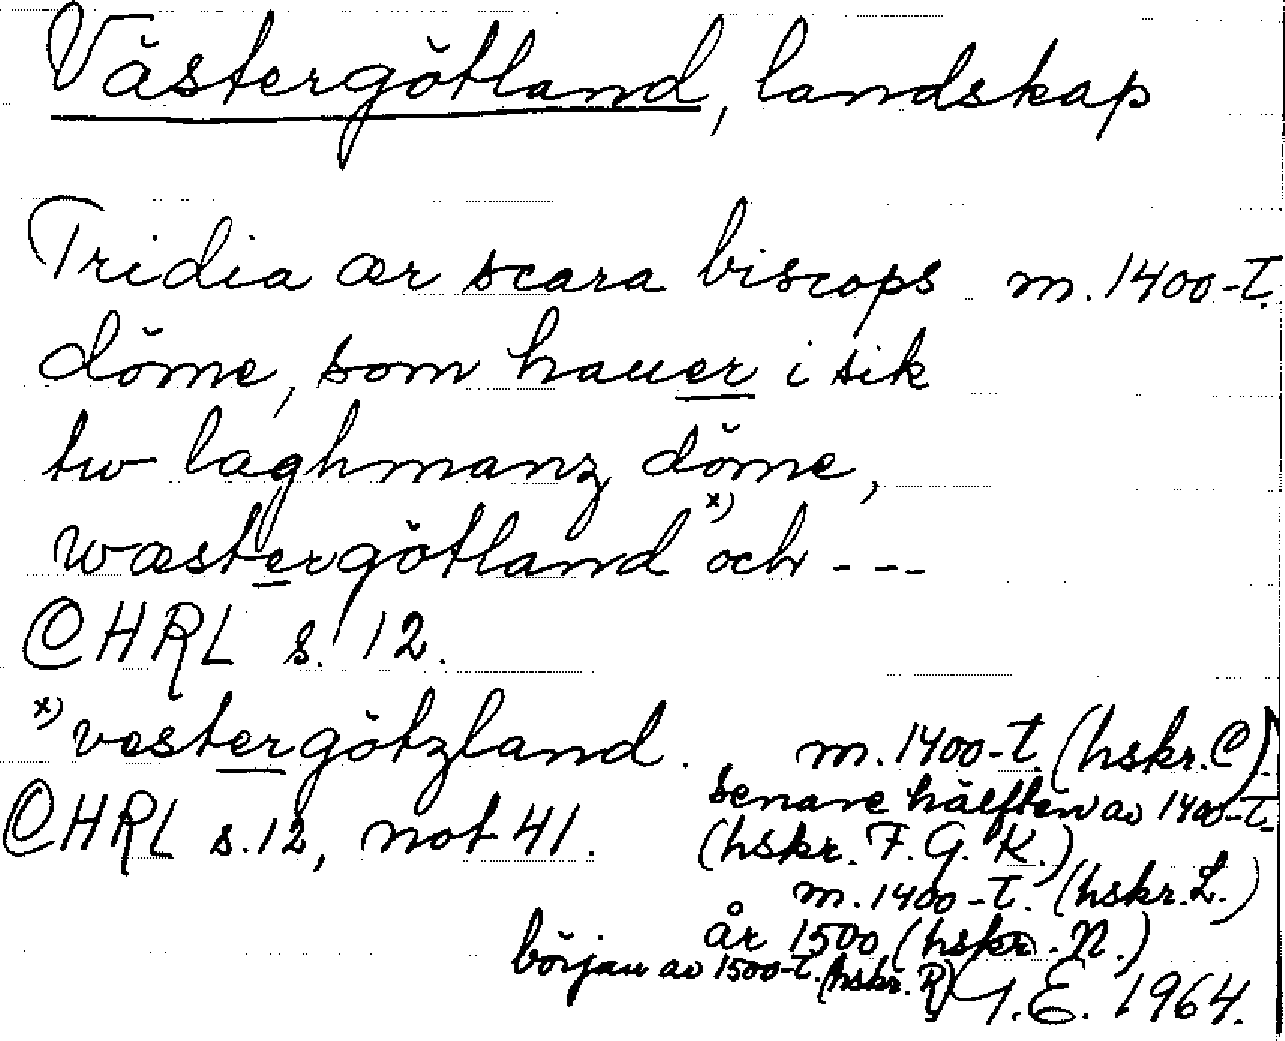 Västergötland, landskap
Tridia ær scara biscops m. 1400-t.
döme, som hauer i sik
tw laghmanz döme,
wæstergötland x) och ---
CHRL s. 12.
x) vestergötzland. m. 1400-t. (hskr. C).
senare hälften av 1400-t.
CHRL s. 12, not 41. (hskr. F. G. K.)
m. 1400-t. (hskr. L.)
år 1500 (hskr. N.)
början av 1500-t. (hskr. R) G.E. 1964.